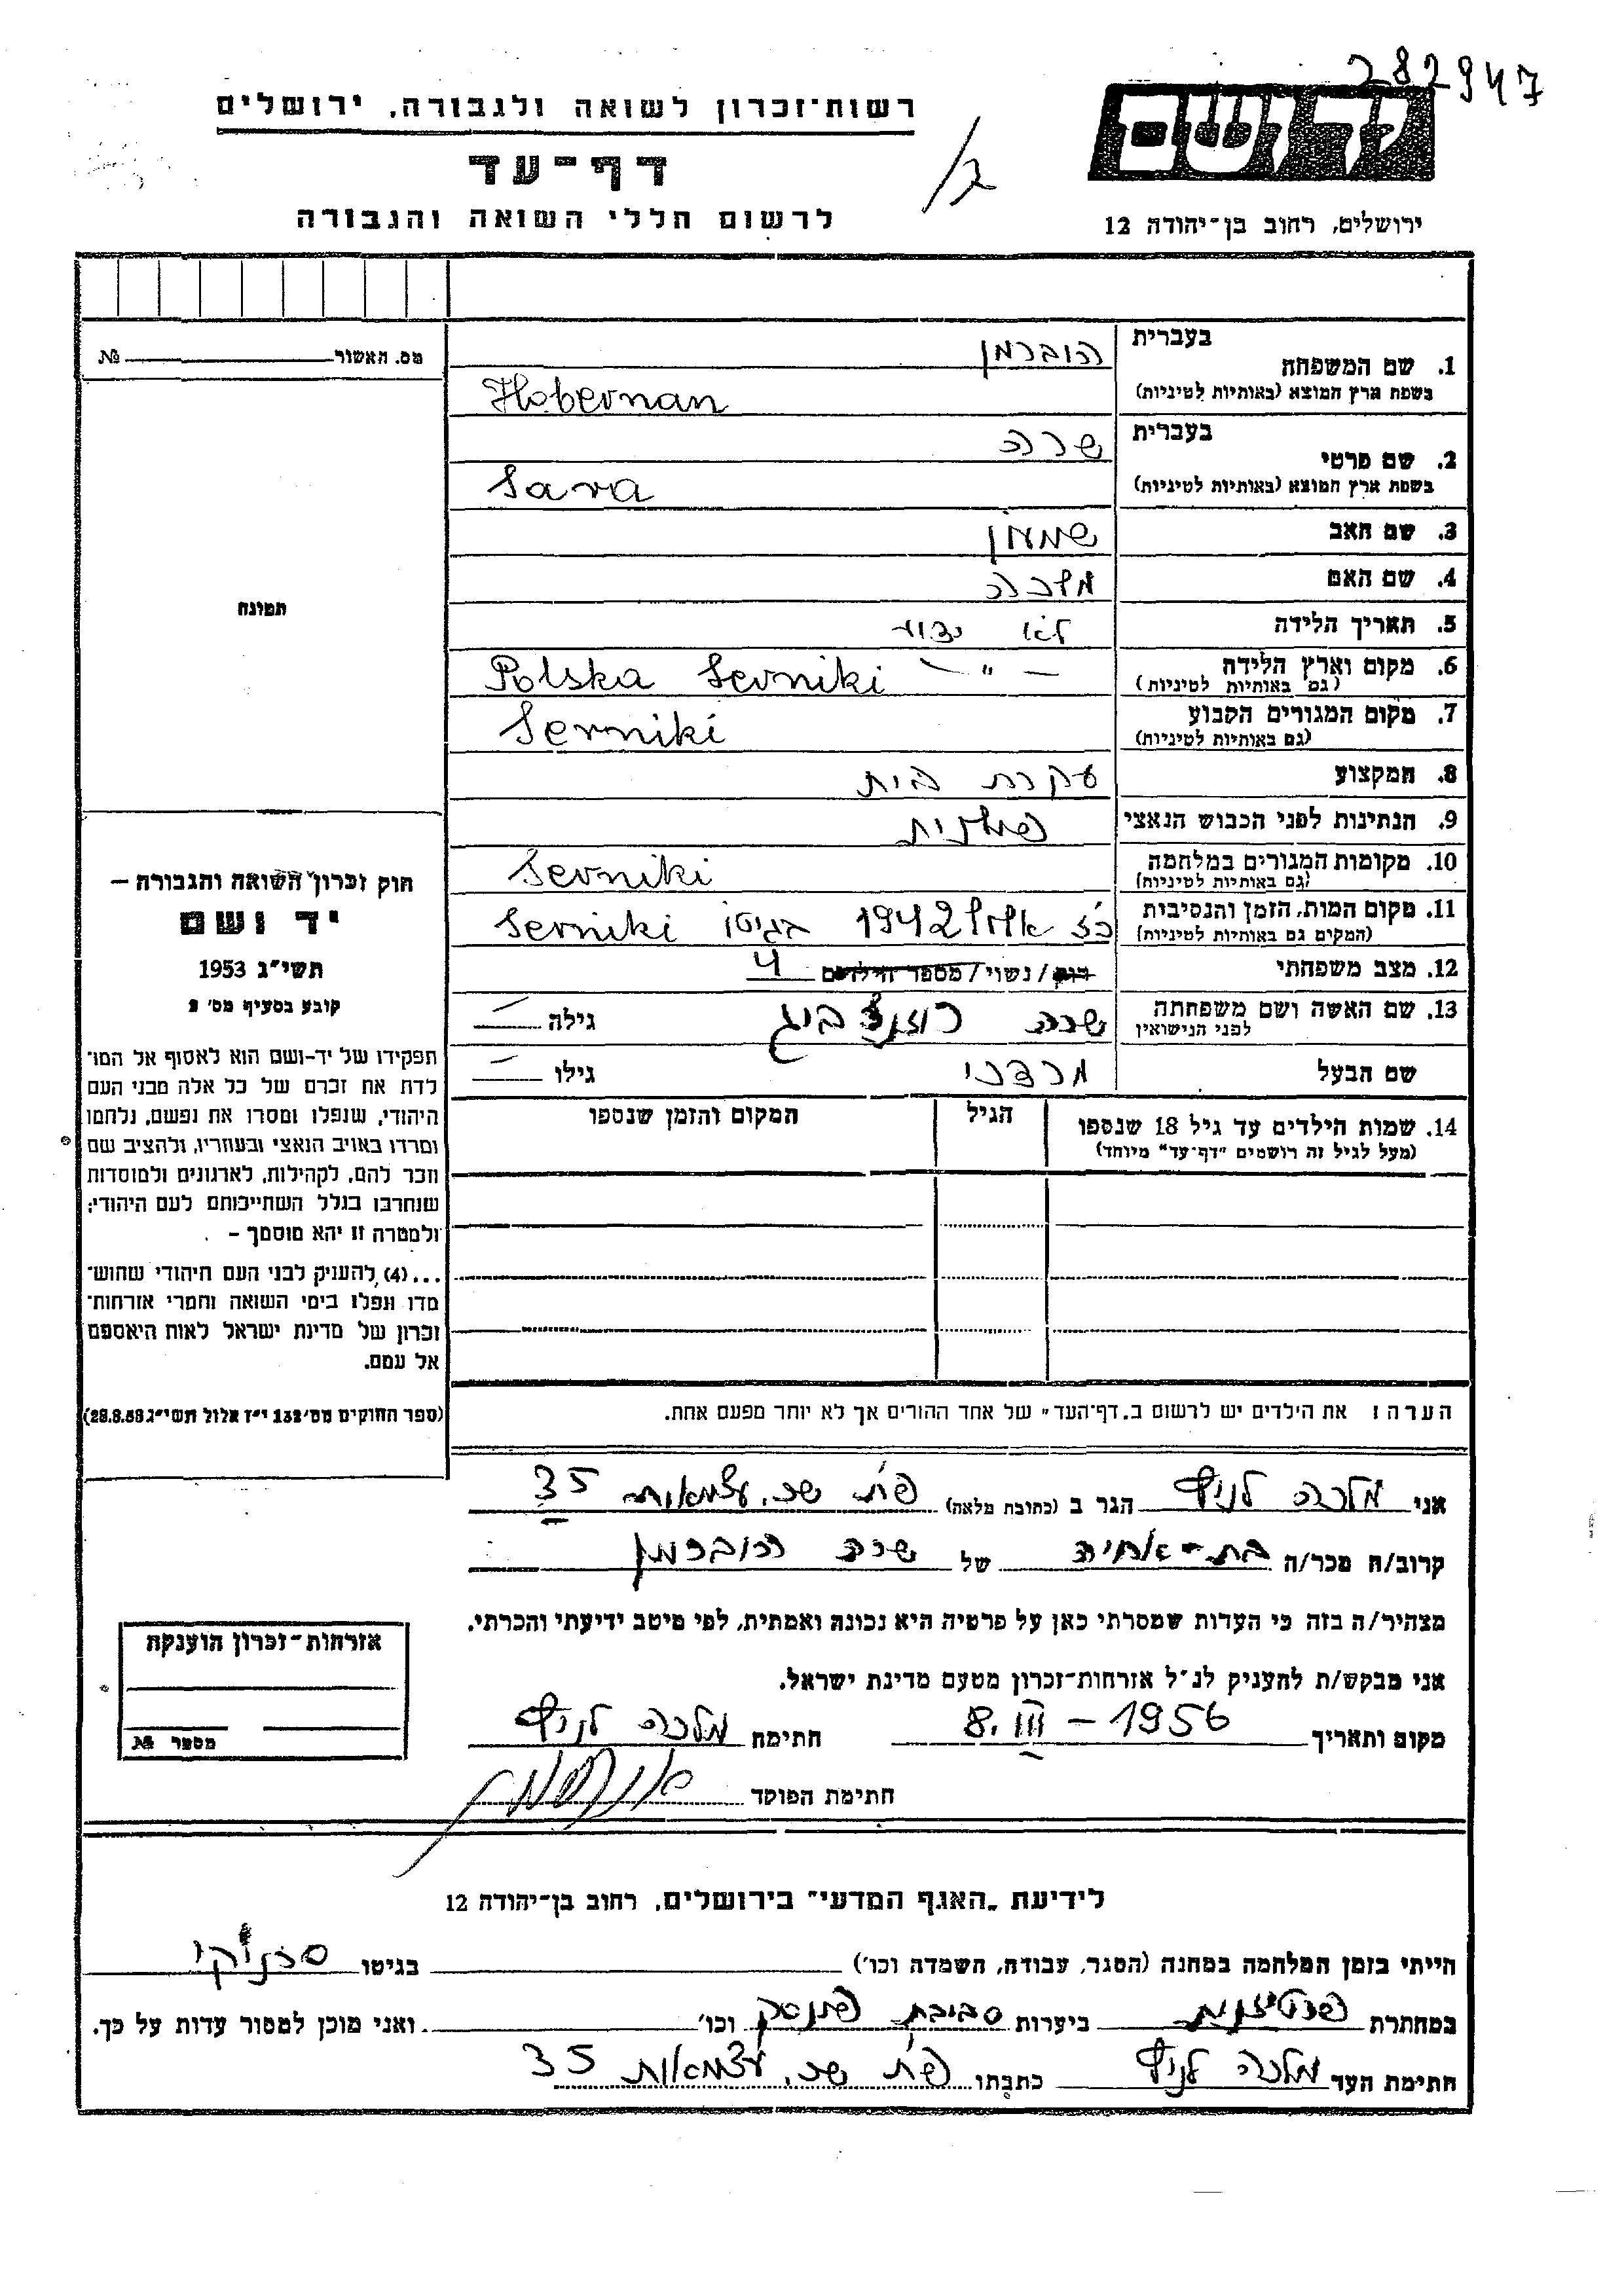 282947
רשות־זכרון לשואה ולגבורה, ירושלים
דף־עד
לרשום חללי השואה והגבורה
יד ושם
ירושלים, רחוב בן־יהודה 12
מס. האשור № 
תמונה
1. שם המשפחה
בעברית הוברמן
בשפת ארץ המוצא (באותיות לטיניות) Hobernan
2. שם פרטי
בעברית שרה
בשפת ארץ המוצא (באותיות לטיניות) Sara
3. שם האב שמעון
4. שם האם מלכה
5. תאריך הלידה לא ידוע
6. מקום וארץ הלידה — " — Polska Serniki
(גם באותיות לטיניות)
7. מקום המגורים הקבוע Serniki
(גם באותיות לטיניות)
8. המקצוע עקרת בית
9. הנתינות לפני הכבוש הנאצי פולנית
10. מקומות המגורים במלחמה Serniki
(גם באותיות לטיניות)
11. מקום המות, הזמן והנסיבות כ"ז אלול 1942 בגיטו Serniki
(המקום גם באותיות לטיניות)
12. מצב משפחתי רוק / נשוי / מספר הילדים 4
13. שם האשה ושם משפחתה שרה גילה —
לפני הנישואין
שם הבעל מרדכי גילו —
14. שמות הילדים עד גיל 18 שנספו הגיל המקום והזמן שנספו
(מעל לגיל זה רושמים "דף־עד" מיוחד)
הערה: את הילדים יש לרשום ב„דף־העד" של אחד ההורים אך לא יותר מפעם אחת.
חוק זכרון השואה והגבורה —
יד ושם
תשי"ג 1953
קובע בסעיף מס' 2
תפקידו של יד-ושם הוא לאסוף אל המו־
לדת את זכרם של כל אלה מבני העם
היהודי, שנפלו ומסרו את נפשם, נלחמו
ומרדו באויב הנאצי ובעוזריו, ולהציב שם
וזכר להם, לקהילות, לארגונים ולמוסדות
שנחרבו בגלל השתייכותם לעם היהודי;
ולמטרה זו יהא מוסמך –
...(4) להעניק לבני העם היהודי שהוש־
מדו ונפלו בימי השואה והמרי אזרחות־
זכרון של מדינת ישראל לאות היאספם
אל עמם.
(ספר החוקים מס' 132 י"ז אלול תשי"ג 28.8.53)
אני מלכה הגר ב (כתובת מלאה) פ"ת שכ. עצמאות 35
קרוב/ה מכר/ה בת-אחיה של שרה הוברמן
מצהיר/ה בזה כי העדות שמסרתי כאן על פרטיה היא נכונה ואמתית, לפי מיטב ידיעתי והכרתי.
אני מבקש/ת להעניק לנ"ל אזרחות־זכרון מטעם מדינת ישראל.
מקום ותאריך 8. III – 1956 חתימה מלכה
חתימת הפוקד
אזרחות־זכרון הוענקה
מספר №
לידיעת „האגף המדעי" בירושלים, רחוב בן־יהודה 12
הייתי בזמן המלחמה במחנה (הסגר, עבודה, השמדה וכו') בגיטו סרניקי
במחתרת פרטיזנית ביערות סביבת פינסק וכו' ואני מוכן למסור עדות על כך.
חתימת העד מלכה כתבתו פ"ת שכ. עצמאות 35